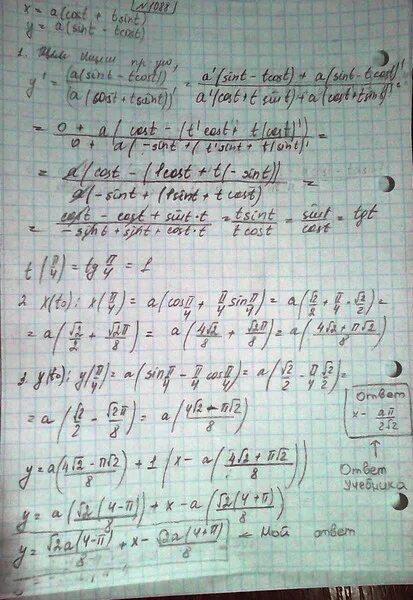 N1088
x = a(cost + tsint)
y = a(sint - tcost)
y' = (a(sint - tcost))' / (a(cost + tsint))' = (a'(sint - tcost) + a(sint - tcost)') / (a'(cost + tsint) + a(cost + tsint)') =
= (0 + a(cost - (t'cost + t(cost)'))) / (0 + a(-sint + (t'sint + t(sint)'))) =
= a(cost - (1cost + t(-sint))) / a(-sint + (1sint + tcost)) =
= (cost - cost + sint·t) / (-sint + sint + cost·t) = tsint / tcost = sint / cost = tgt
t(π/4) = tg π/4 = 1
2. x(t0): x(π/4) = a(cos π/4 + π/4 sin π/4) = a(√2/2 + π/4 · √2/2) =
= a(√2/2 + √2π/8) = a(4√2/8 + √2π/8) = a((4√2 + π√2)/8)
3. y(t0): y(π/4) = a(sin π/4 - π/4 cos π/4) = a(√2/2 - π/4 √2/2) =
= a(√2/2 - √2π/8) = a((4√2 - π√2)/8)
Ответ
x - aπ/2√2
Ответ
учебника
y = a((4√2 - π√2)/8) + 1(x - a((4√2 + π√2)/8))
y = a(√2(4-π)/8) + x - a(√2(4+π)/8)
y = √2a(4-π)/8 + x - √2a(4+π)/8 ← Мой ответ